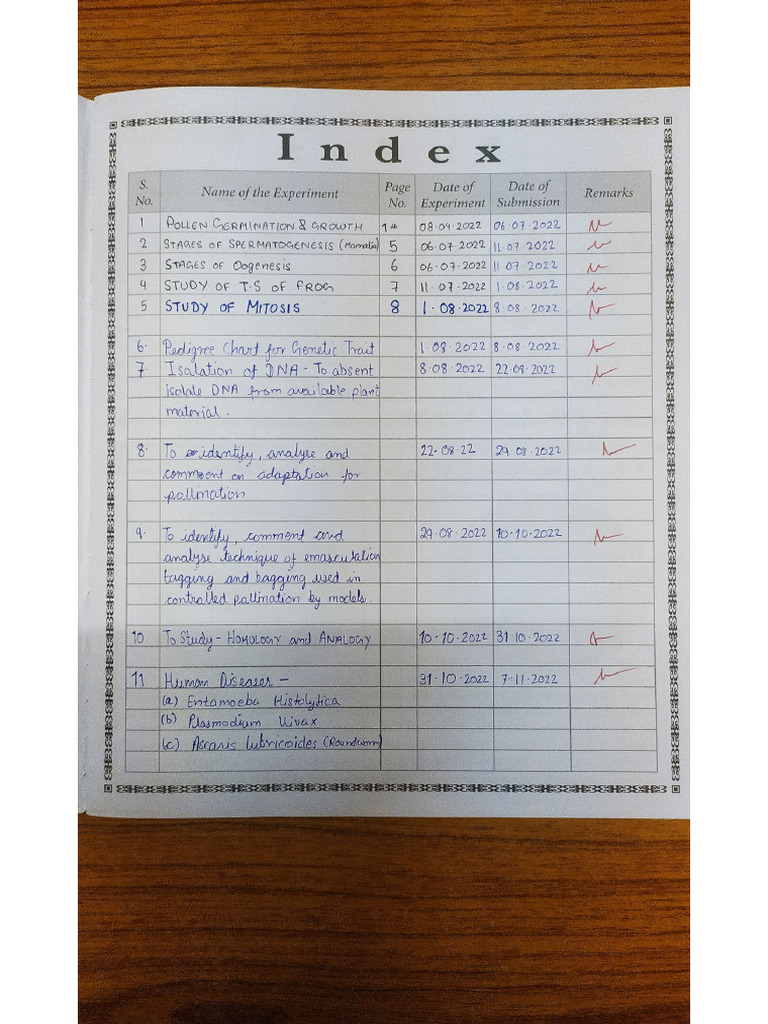 Index
S. No. Name of the Experiment Page No. Date of Experiment Date of Submission Remarks
1 POLLEN GERMINATION & GROWTH 08.04.2022 06.07.2022
2 STAGES OF SPERMATOGENESIS (Mamalia) 5 06.07.2022 11.07.2022
3 STAGES OF Oogenesis 6 06.07.2022 11.07.2022
4 STUDY OF T.S OF FROG 7 11.07.2022 1.08.2022
5 STUDY OF MITOSIS 8 1.08.2022 8.08.2022
6. Pedigree Chart for Genetic Trait 1.08.2022 8.08.2022
7. Isolation of DNA - To absent 8.08.2022 22.08.2022
isolate DNA from available plant
material.
8. To identify, analyse and 22.08.22 29.08.2022
comment on adaptation for
pollination
9. To identify, comment and 29.08.2022 10.10.2022
analyse technique of emasculation
tagging and bagging used in
controlled pollination by models.
10 To Study - HOMOLOGY and ANALOGY 10.10.2022 31.10.2022
11 HUMAN DISEASES - 31.10.2022 7.11.2022
(a) Entamoeba Histolytica
(b) Plasmodium Vivax
(c) Ascaris lubricoides (Roundworm)